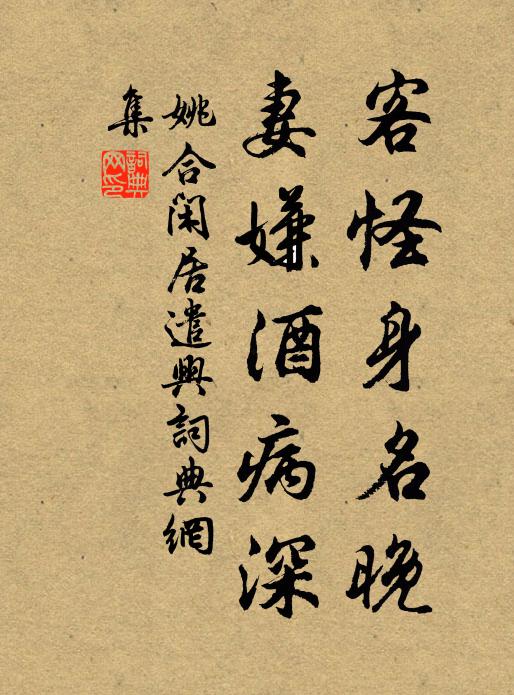 客怪身名晚
妻嫌酒病深
姚合閑居遣興詞典網
集
詞典
网印